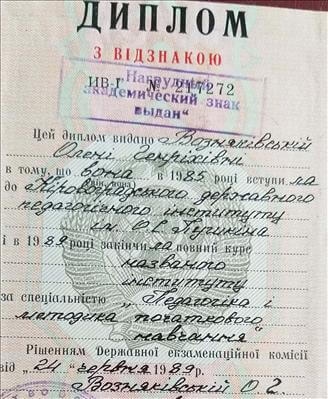 ДИПЛОМ
З ВІДЗНАКОЮ
ИВ-I № 217272
"Нагрудный
академический знак
выдан"
Цей диплом видано Возняківській
Олені Генріхівні
в тому, що вона в 1985 році вступила
до Кіровоградського державного
педагогічного інституту
ім. О.С. Пушкіна
і в 1989 році закінчила повний курс
названого
інституту
за спеціальністю „Педагогіка і
методика початкового
навчання"
Рішенням Державної екзаменаційної комісії
від „24" червня 1989 р.
Возняківській О. Г.